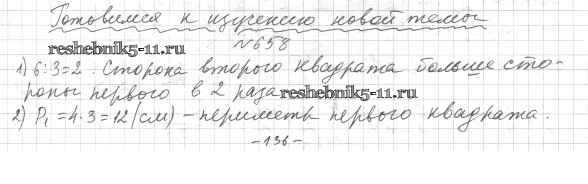 Готовимся к изучению новой темы
№658
reshebnik5-11.ru
1) 6:3=2. Сторона второго квадрата больше сто-
роны первого в 2 раза
reshebnik5-11.ru
2) P₁ = 4·3 = 12 (см) – периметр первого квадрата.
-136-